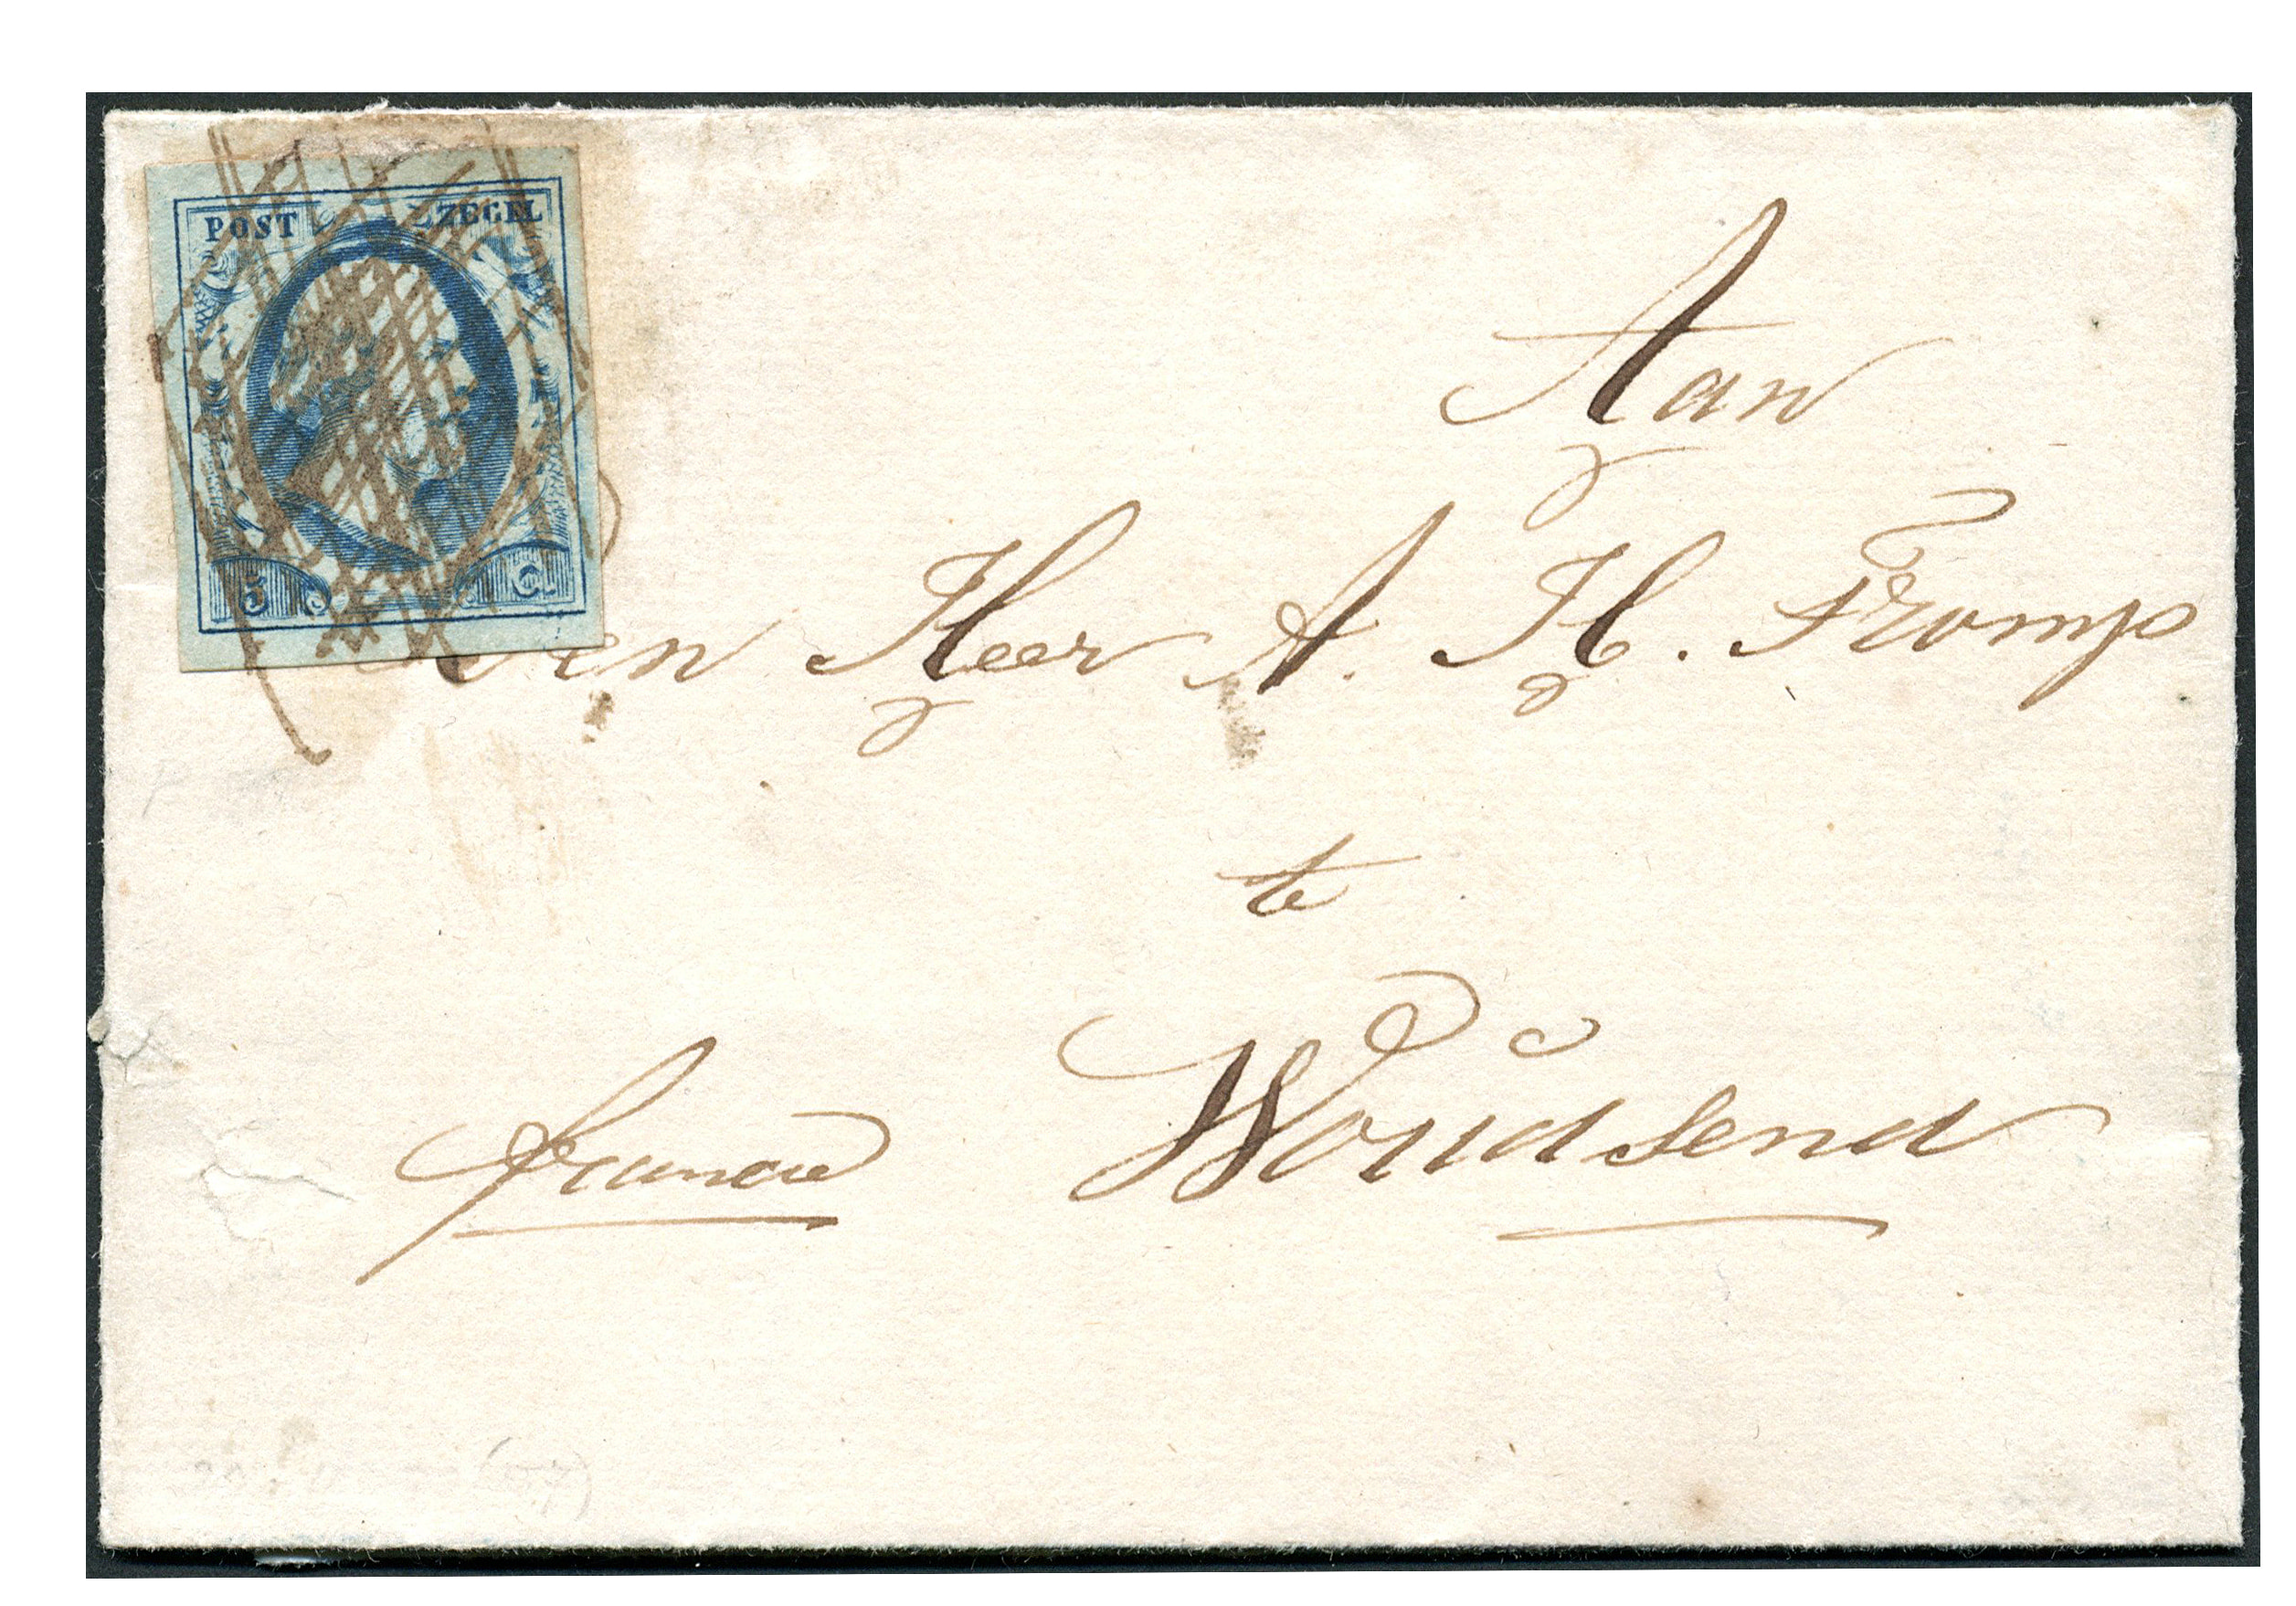 POST ZEGEL
5 Ct
Aan
Den Heer A. H. Tromp
te
Woudsend
franco